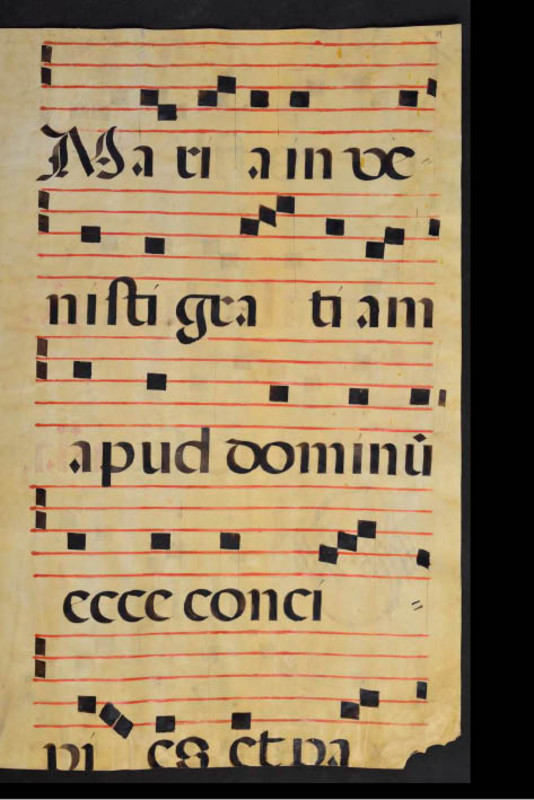 Ma ri a in ve=
nisti gra ti am
apud dominū
ecce conci =
pi es et pa